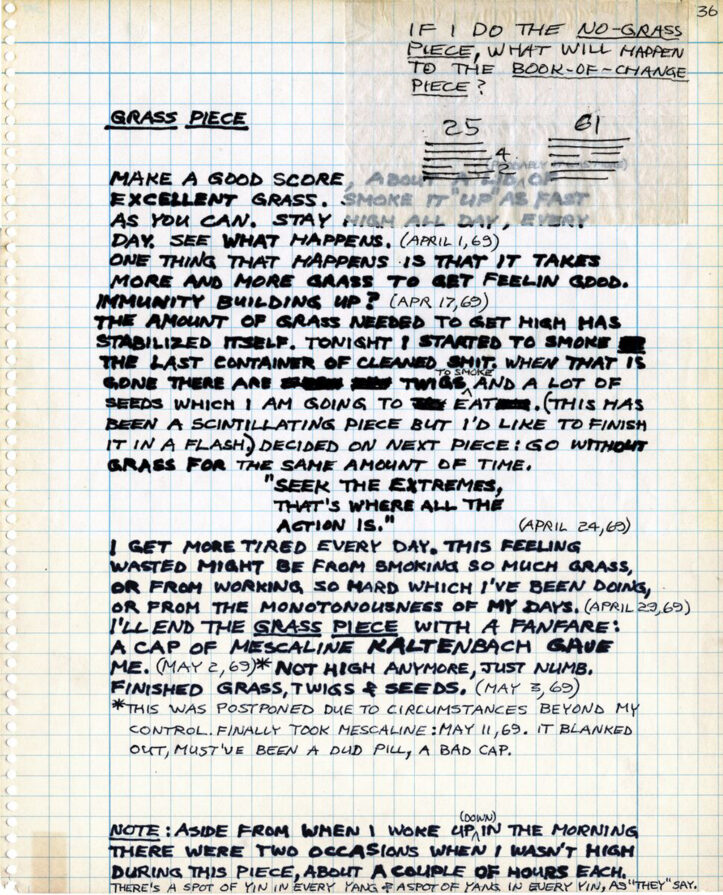 36
IF I DO THE NO-GRASS
PIECE, WHAT WILL HAPPEN
TO THE BOOK-OF-CHANGE
PIECE?
GRASS PIECE
25 61
4
2
MAKE A GOOD SCORE, ABOUT A LID OF
EXCELLENT GRASS. SMOKE IT "UP" AS FAST
AS YOU CAN. STAY HIGH ALL DAY, EVERY
DAY. SEE WHAT HAPPENS. (APRIL 1,69)
ONE THING THAT HAPPENS IS THAT IT TAKES
MORE AND MORE GRASS TO GET FEELIN GOOD.
IMMUNITY BUILDING UP? (APR 17,69)
THE AMOUNT OF GRASS NEEDED TO GET HIGH HAS
STABILIZED ITSELF. TONIGHT I STARTED TO SMOKE
THE LAST CONTAINER OF CLEANED SHIT. WHEN THAT IS
GONE THERE ARE TWIGS TO SMOKE AND A LOT OF
SEEDS WHICH I AM GOING TO EAT. (THIS HAS
BEEN A SCINTILLATING PIECE BUT I'D LIKE TO FINISH
IT IN A FLASH.) DECIDED ON NEXT PIECE: GO WITHOUT
GRASS FOR THE SAME AMOUNT OF TIME.
"SEEK THE EXTREMES,
THAT'S WHERE ALL THE
ACTION IS." (APRIL 24,69)
I GET MORE TIRED EVERY DAY. THIS FEELING
WASTED MIGHT BE FROM SMOKING SO MUCH GRASS,
OR FROM WORKING SO HARD WHICH I'VE BEEN DOING,
OR FROM THE MONOTONOUSNESS OF MY DAYS. (APRIL 29,69)
I'LL END THE GRASS PIECE WITH A FANFARE:
A CAP OF MESCALINE KALTENBACH GAVE
ME. (MAY 2,69)* NOT HIGH ANYMORE, JUST NUMB.
FINISHED GRASS, TWIGS & SEEDS. (MAY 3,69)
*THIS WAS POSTPONED DUE TO CIRCUMSTANCES BEYOND MY
CONTROL. FINALLY TOOK MESCALINE: MAY 11,69. IT BLANKED
OUT, MUST'VE BEEN A DUD PILL, A BAD CAP.
NOTE: ASIDE FROM WHEN I WOKE UP (DOWN) IN THE MORNING
THERE WERE TWO OCCASIONS WHEN I WASN'T HIGH
DURING THIS PIECE, ABOUT A COUPLE OF HOURS EACH.
THERE'S A SPOT OF YIN IN EVERY YANG & A SPOT OF YANG IN EVERY YIN, AS "THEY" SAY.